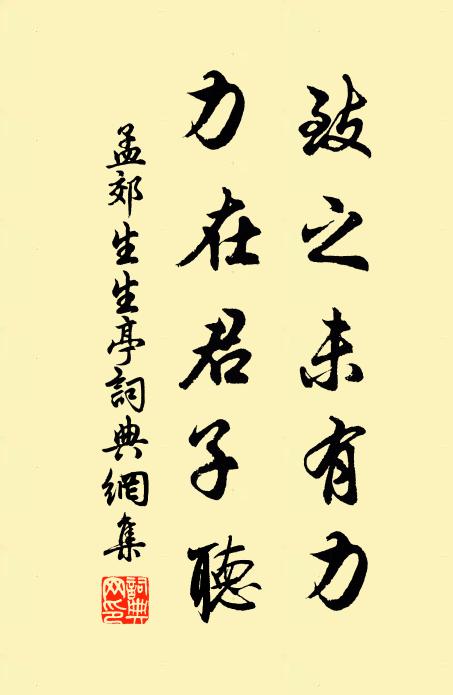 致之未有力
力在君子聽
孟郊生生亭詞典網集
詞典網印